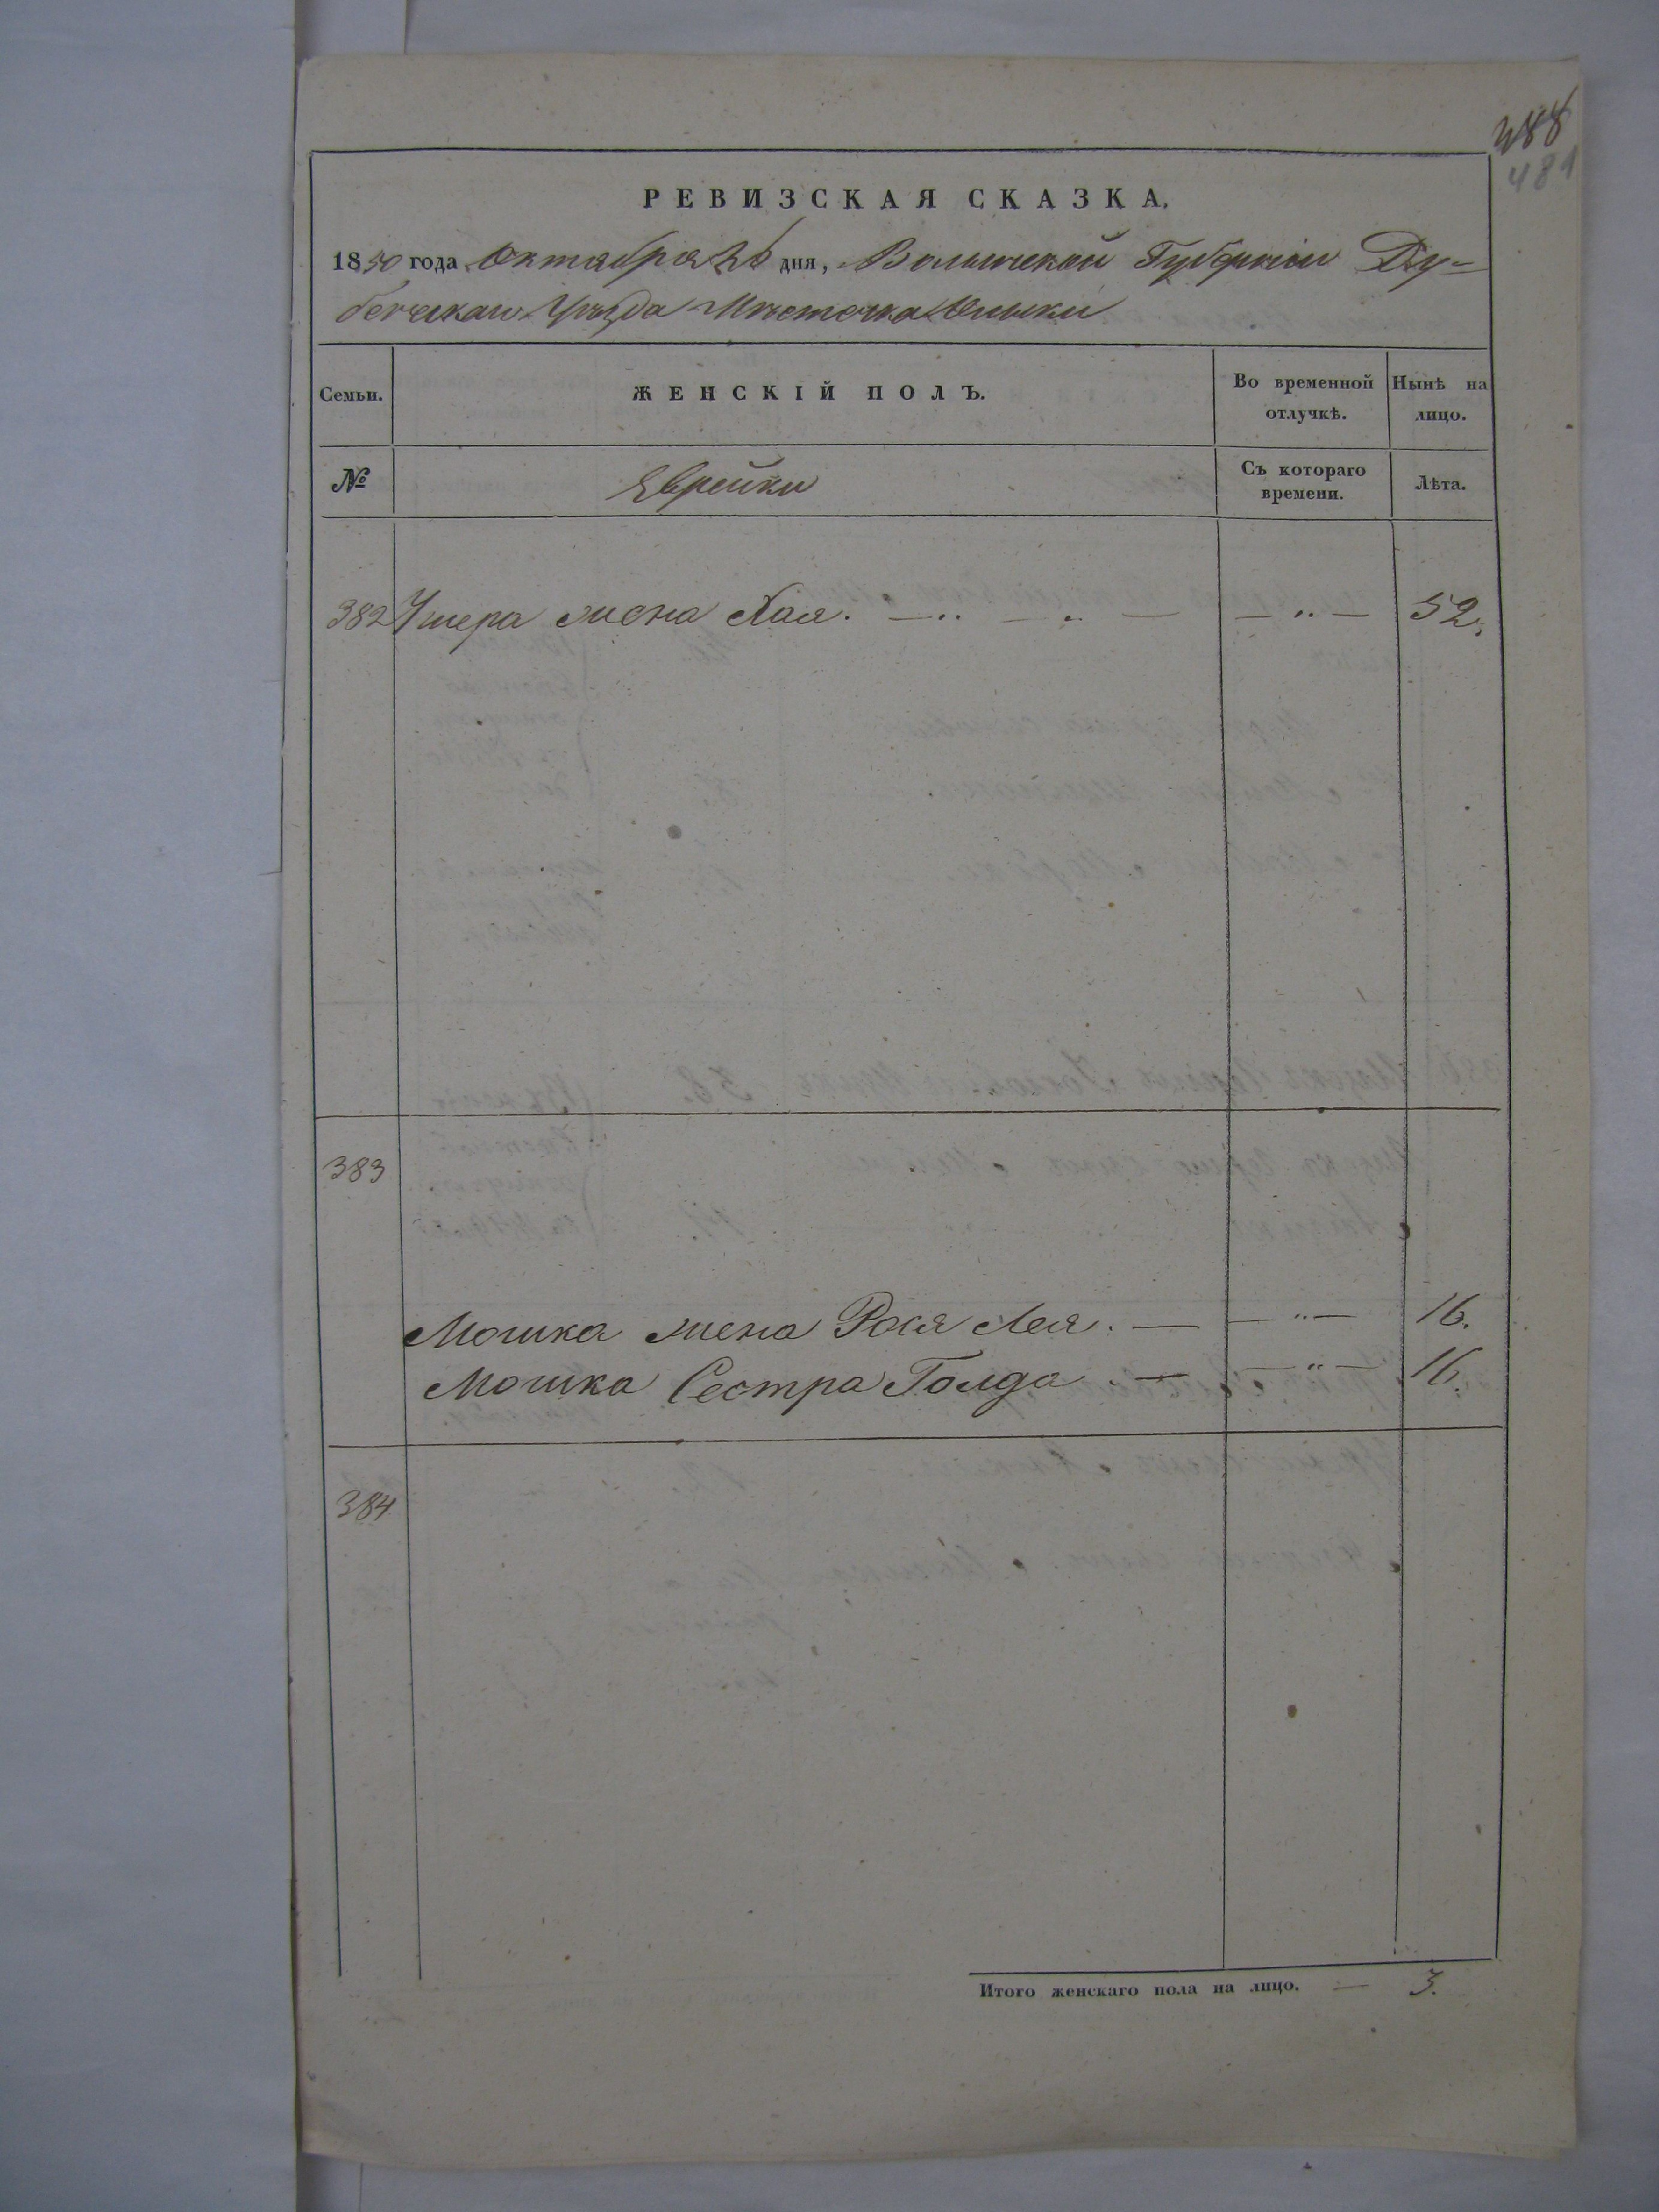 488
481
РЕВИЗСКАЯ СКАЗКА.
1850 года Октября 26 дня, Волынской Губернiи Ду-
бенскаго Уѣзда Мѣстечка Олыки
Семьи.
ЖЕНСКІЙ ПОЛЪ.
Во временной отлучкѣ.
Нынѣ на лицо.
№
Еврейки
Съ котораго времени.
Лѣта.
382 Ушера жена Хая. — „ — „ — — „ — 52.
383
Мошка жена Рося Лея. — — „ — 16.
Мошка Сестра Голда. — — „ — 16.
384
Итого женскаго пола на лицо. — 3.